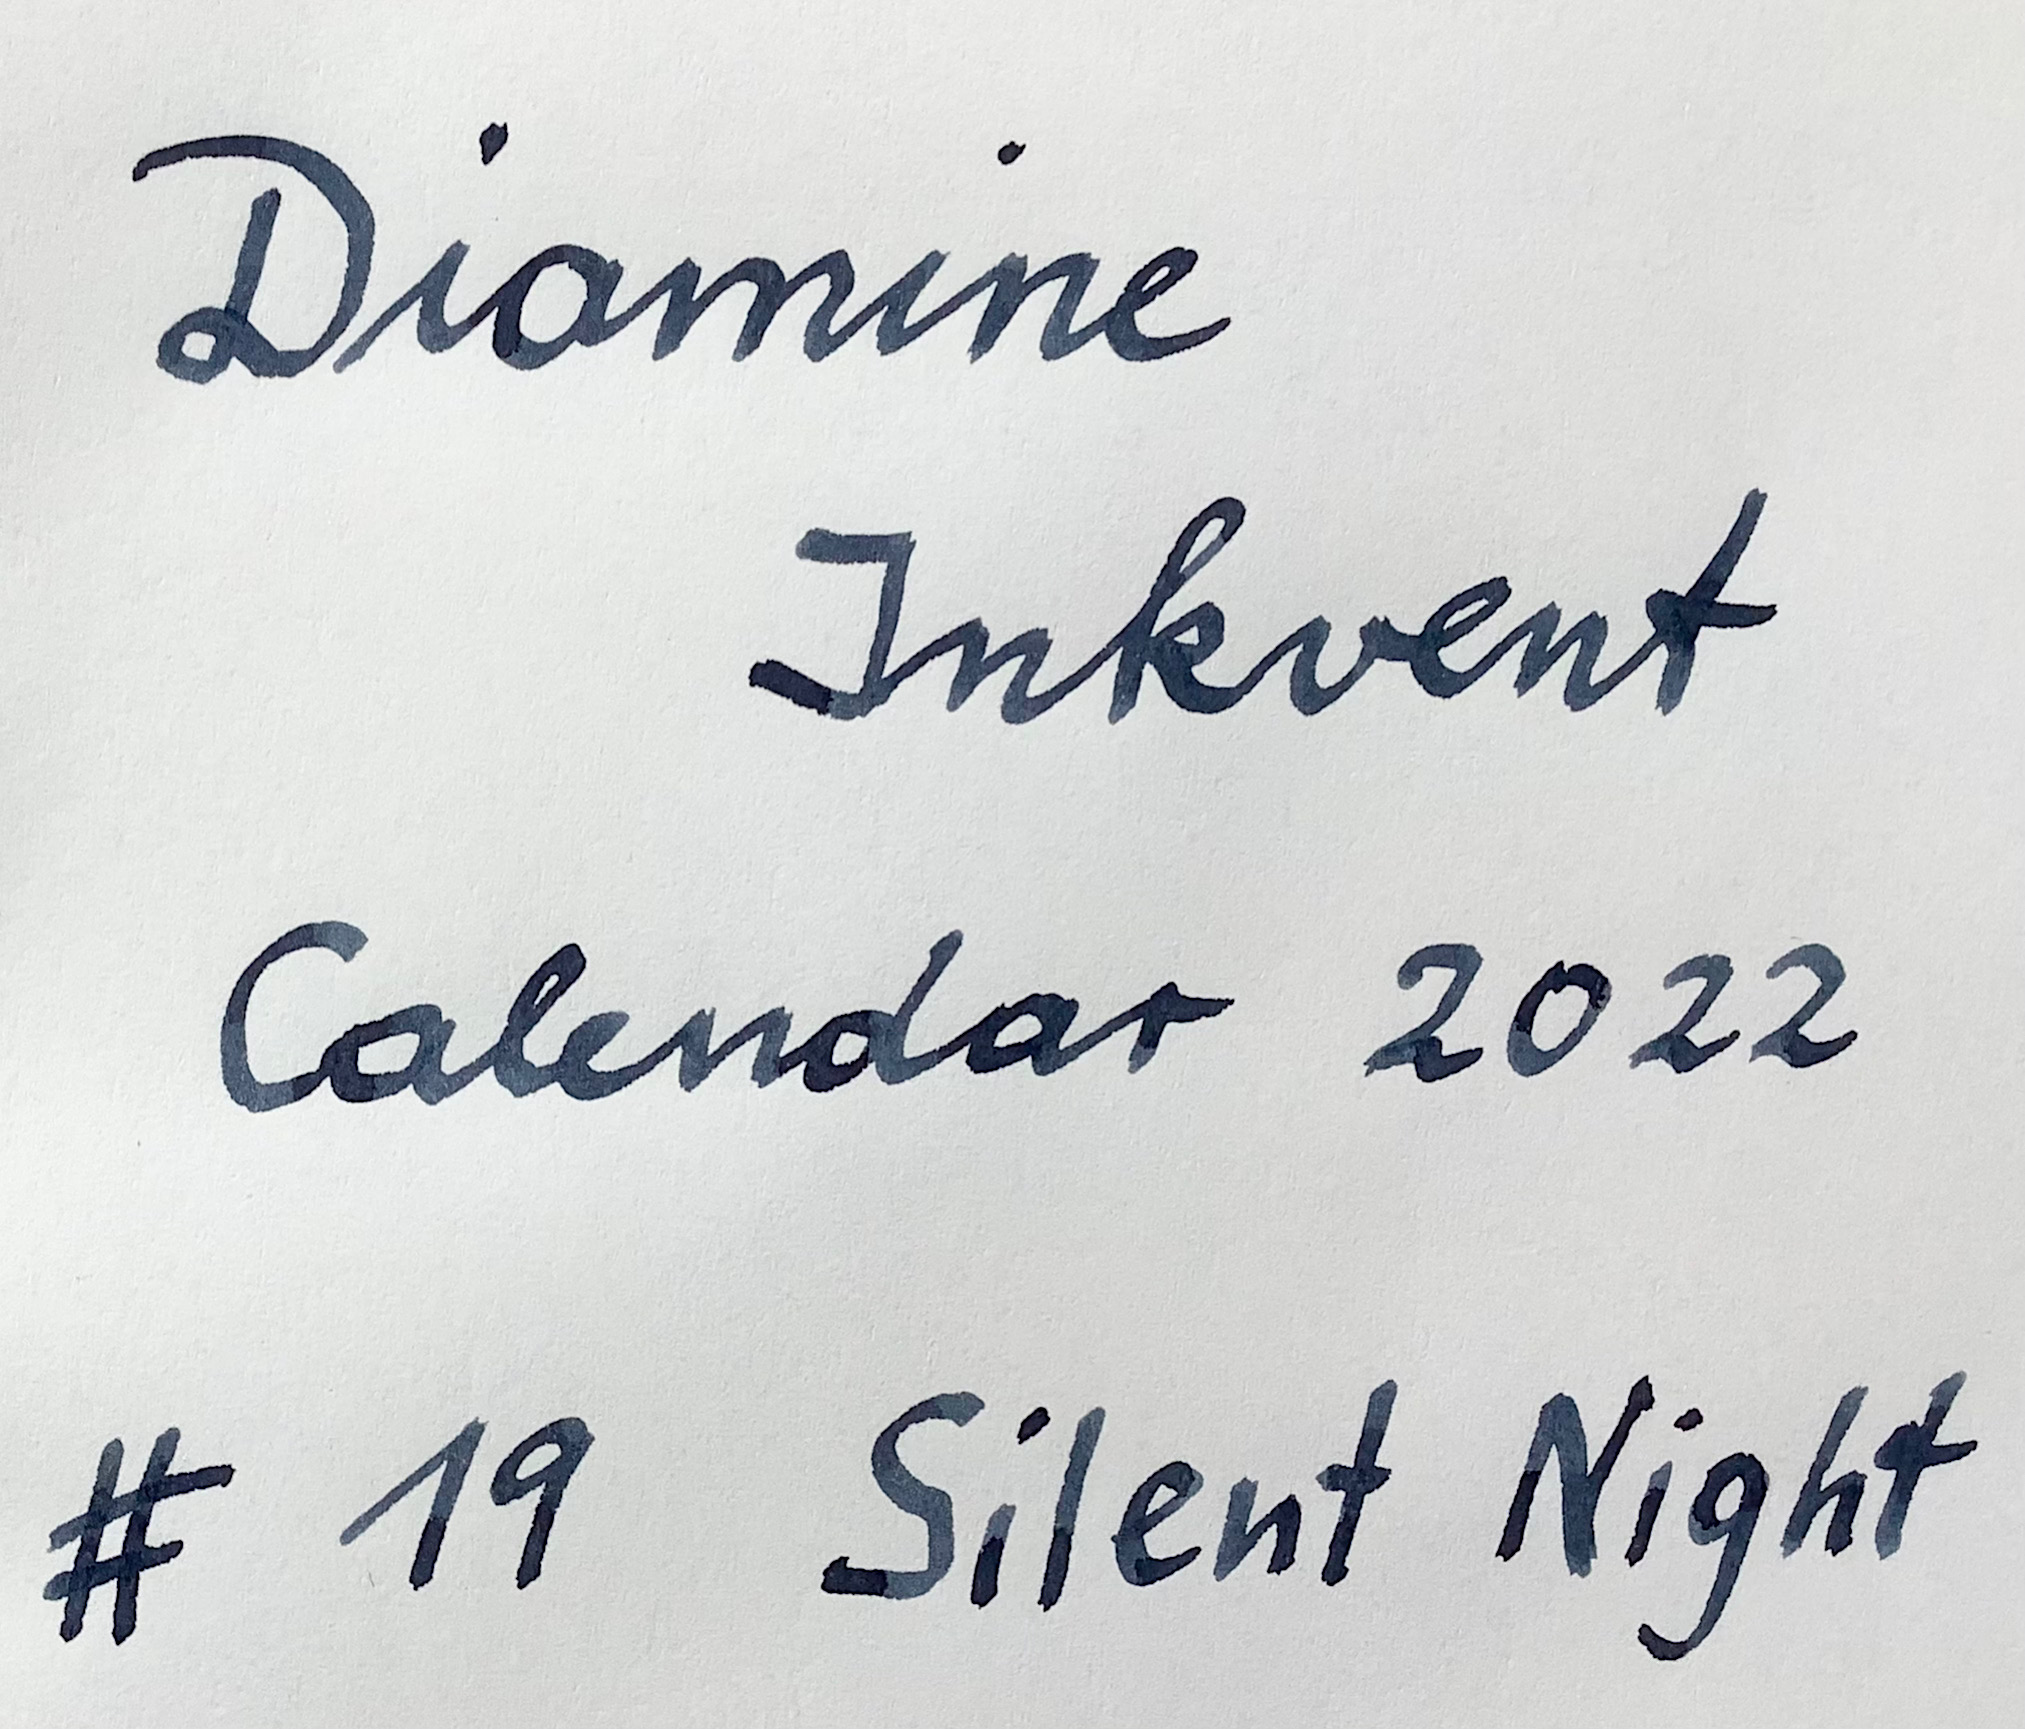 Diamine
Inkvent
Calendar 2022
# 19 Silent Night